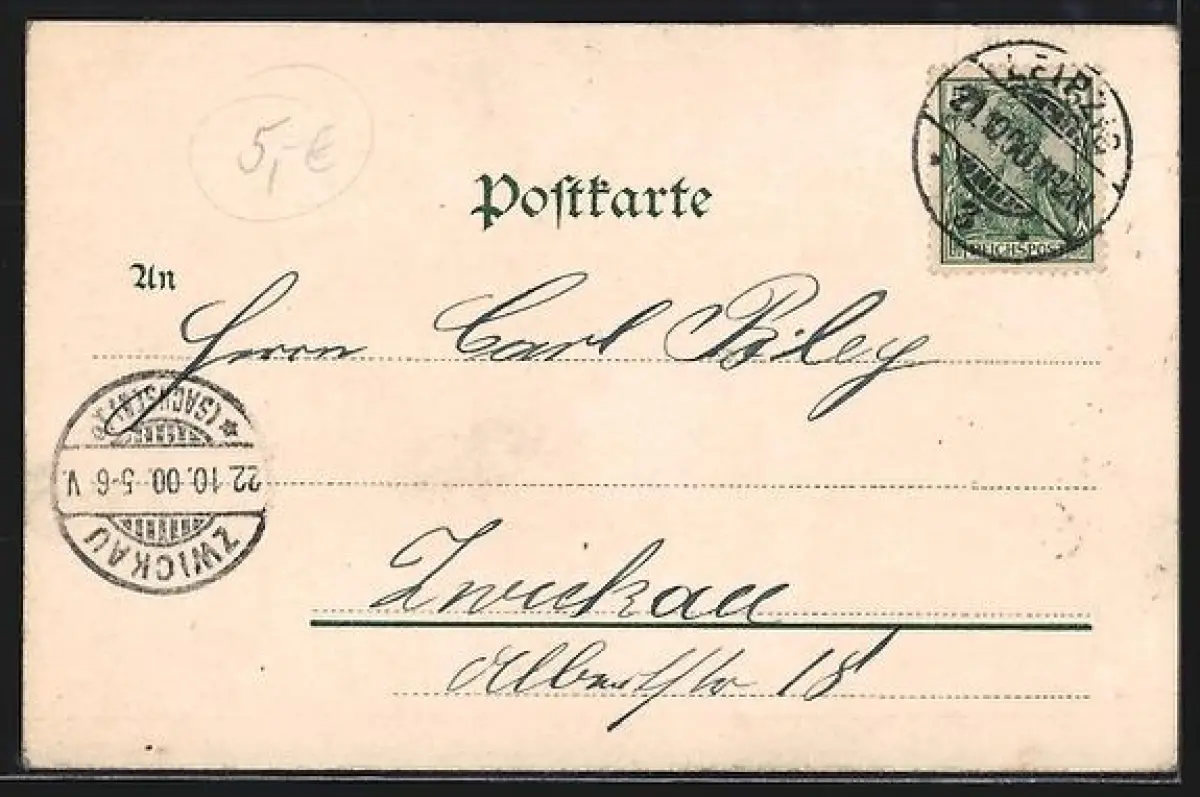 5,-€
Postkarte
LEIPZIG
21.10.00.
3
REICHSPOST
An
Herrn Carl Biley
(SACHSEN)
22.10.00. 5-6 V.
ZWICKAU
Zwickau
Albertstr 18